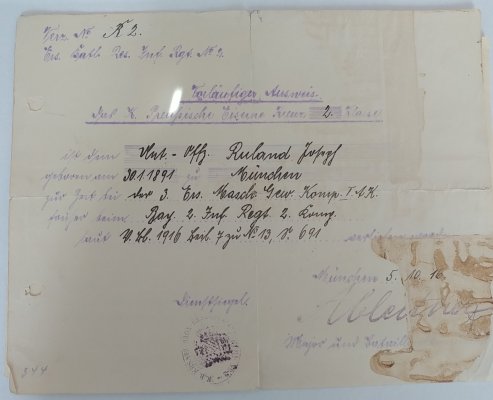 Verz. No K 2.
Ers. Batl. Res. Inf. Rgt. No 2.
Vorläufiger Ausweis.
Das K. Preußische Eiserne Kreuz 2. Klasse
ist dem Unt.-Offz. Ruland Joseph
geboren am 30.1.1891 zu München
zur Zeit bei der 3. Ers. Masch. Gew. Komp. I A.K.
früher beim Bay. 2. Inf. Regt. 2. Komp.
laut V. Bl. 1916 Beil. 7 zu No 13, S. 691 verliehen worden.
München 5. 10. 16.
Dienstsiegel.
Major und
344